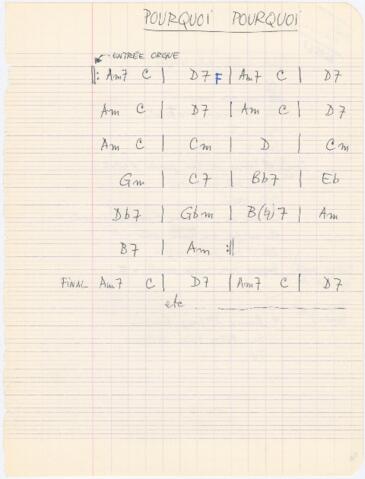 POURQUOI POURQUOI
ENTRÉE ORGUE
||: Am7 C | D7 F | Am7 C | D7
Am C | D7 | Am C | D7
Am C | Cm | D | Cm
Gm | C7 | Bb7 | Eb
Db7 | Gbm | B(4)7 | Am
B7 | Am :||
FINAL Am7 C | D7 | Am7 C | D7
etc